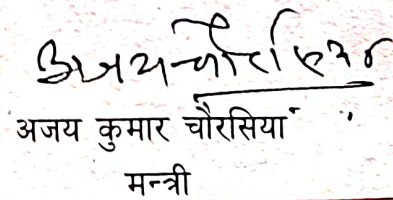 अजय चौरसिया
अजय कुमार चौरसिया
मन्त्री